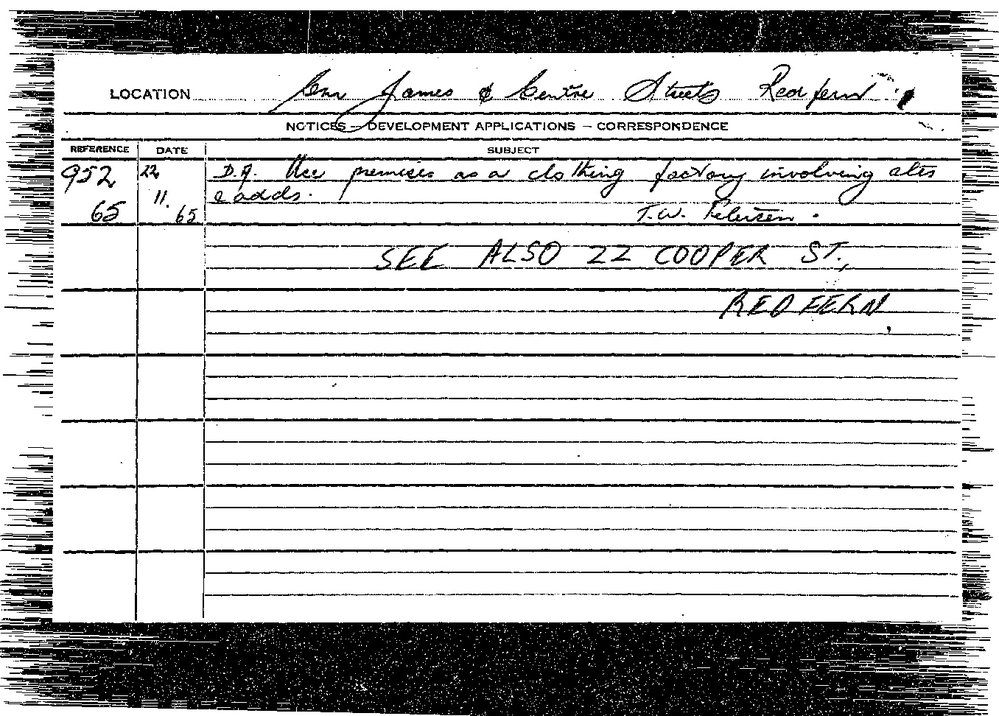 LOCATION Cnr James & Centre Streets Redfern
NOTICES – DEVELOPMENT APPLICATIONS – CORRESPONDENCE
REFERENCE DATE SUBJECT
952 22 D.A. Use premises as a clothing factory involving alts
65 11. 65 & adds.
T.W. Petersen.
SEE ALSO 22 COOPER ST.,
REDFERN